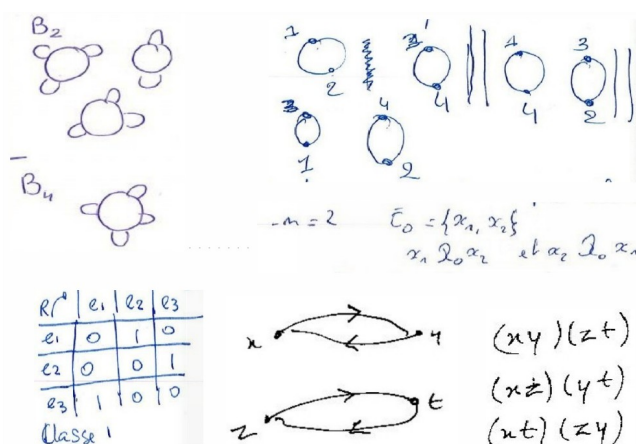 B2
1 2 1 4 4 4 3 2
3 1 4 2
B4
-n=2 E0 = {x1, x2}
x1 R0 x2 et x2 R0 x1
R | e1 | e2 | e3
e1 0 1 0
e2 0 0 1
e3 1 0 0
Classe 1
x y
z t
(xy)(zt)
(xz)(yt)
(xt)(zy)